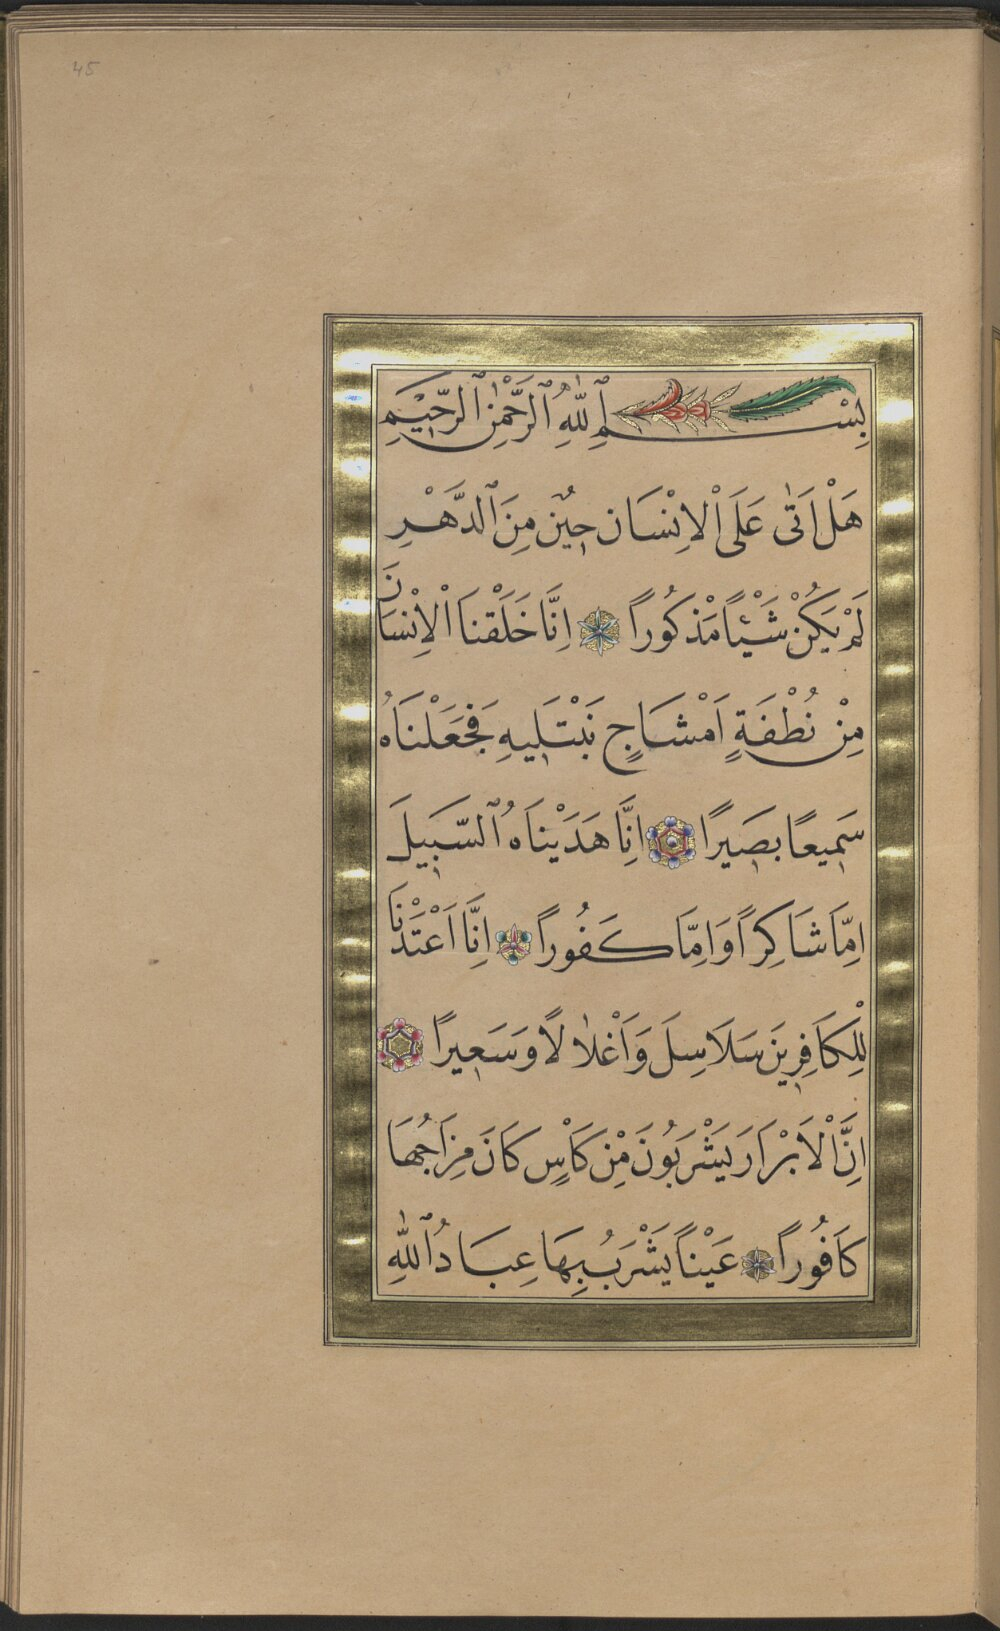 45
بِسْمِ ٱللّٰهِ ٱلرَّحْمٰنِ ٱلرَّحِيْمِ
هَلْ اَتٰى عَلَى ٱلْاِنْسَانِ حِينٌ مِنَ ٱلدَّهْرِ
لَمْ يَكُنْ شَيْئًا مَذْكُورًا اِنَّا خَلَقْنَا ٱلْاِنْسَانَ
مِنْ نُطْفَةٍ اَمْشَاجٍ نَبْتَلِيهِ فَجَعَلْنَاهُ
سَمِيعًا بَصِيرًا اِنَّا هَدَيْنَاهُ ٱلسَّبِيلَ
اِمَّا شَاكِرًا وَاِمَّا كَفُورًا اِنَّا اَعْتَدْنَا
لِلْكَافِرِينَ سَلَاسِلَ وَاَغْلَالًا وَسَعِيرًا
اِنَّ ٱلْاَبْرَارَ يَشْرَبُونَ مِنْ كَاْسٍ كَانَ مِزَاجُهَا
كَافُورًا عَيْنًا يَشْرَبُ بِهَا عِبَادُ ٱللّٰهِ